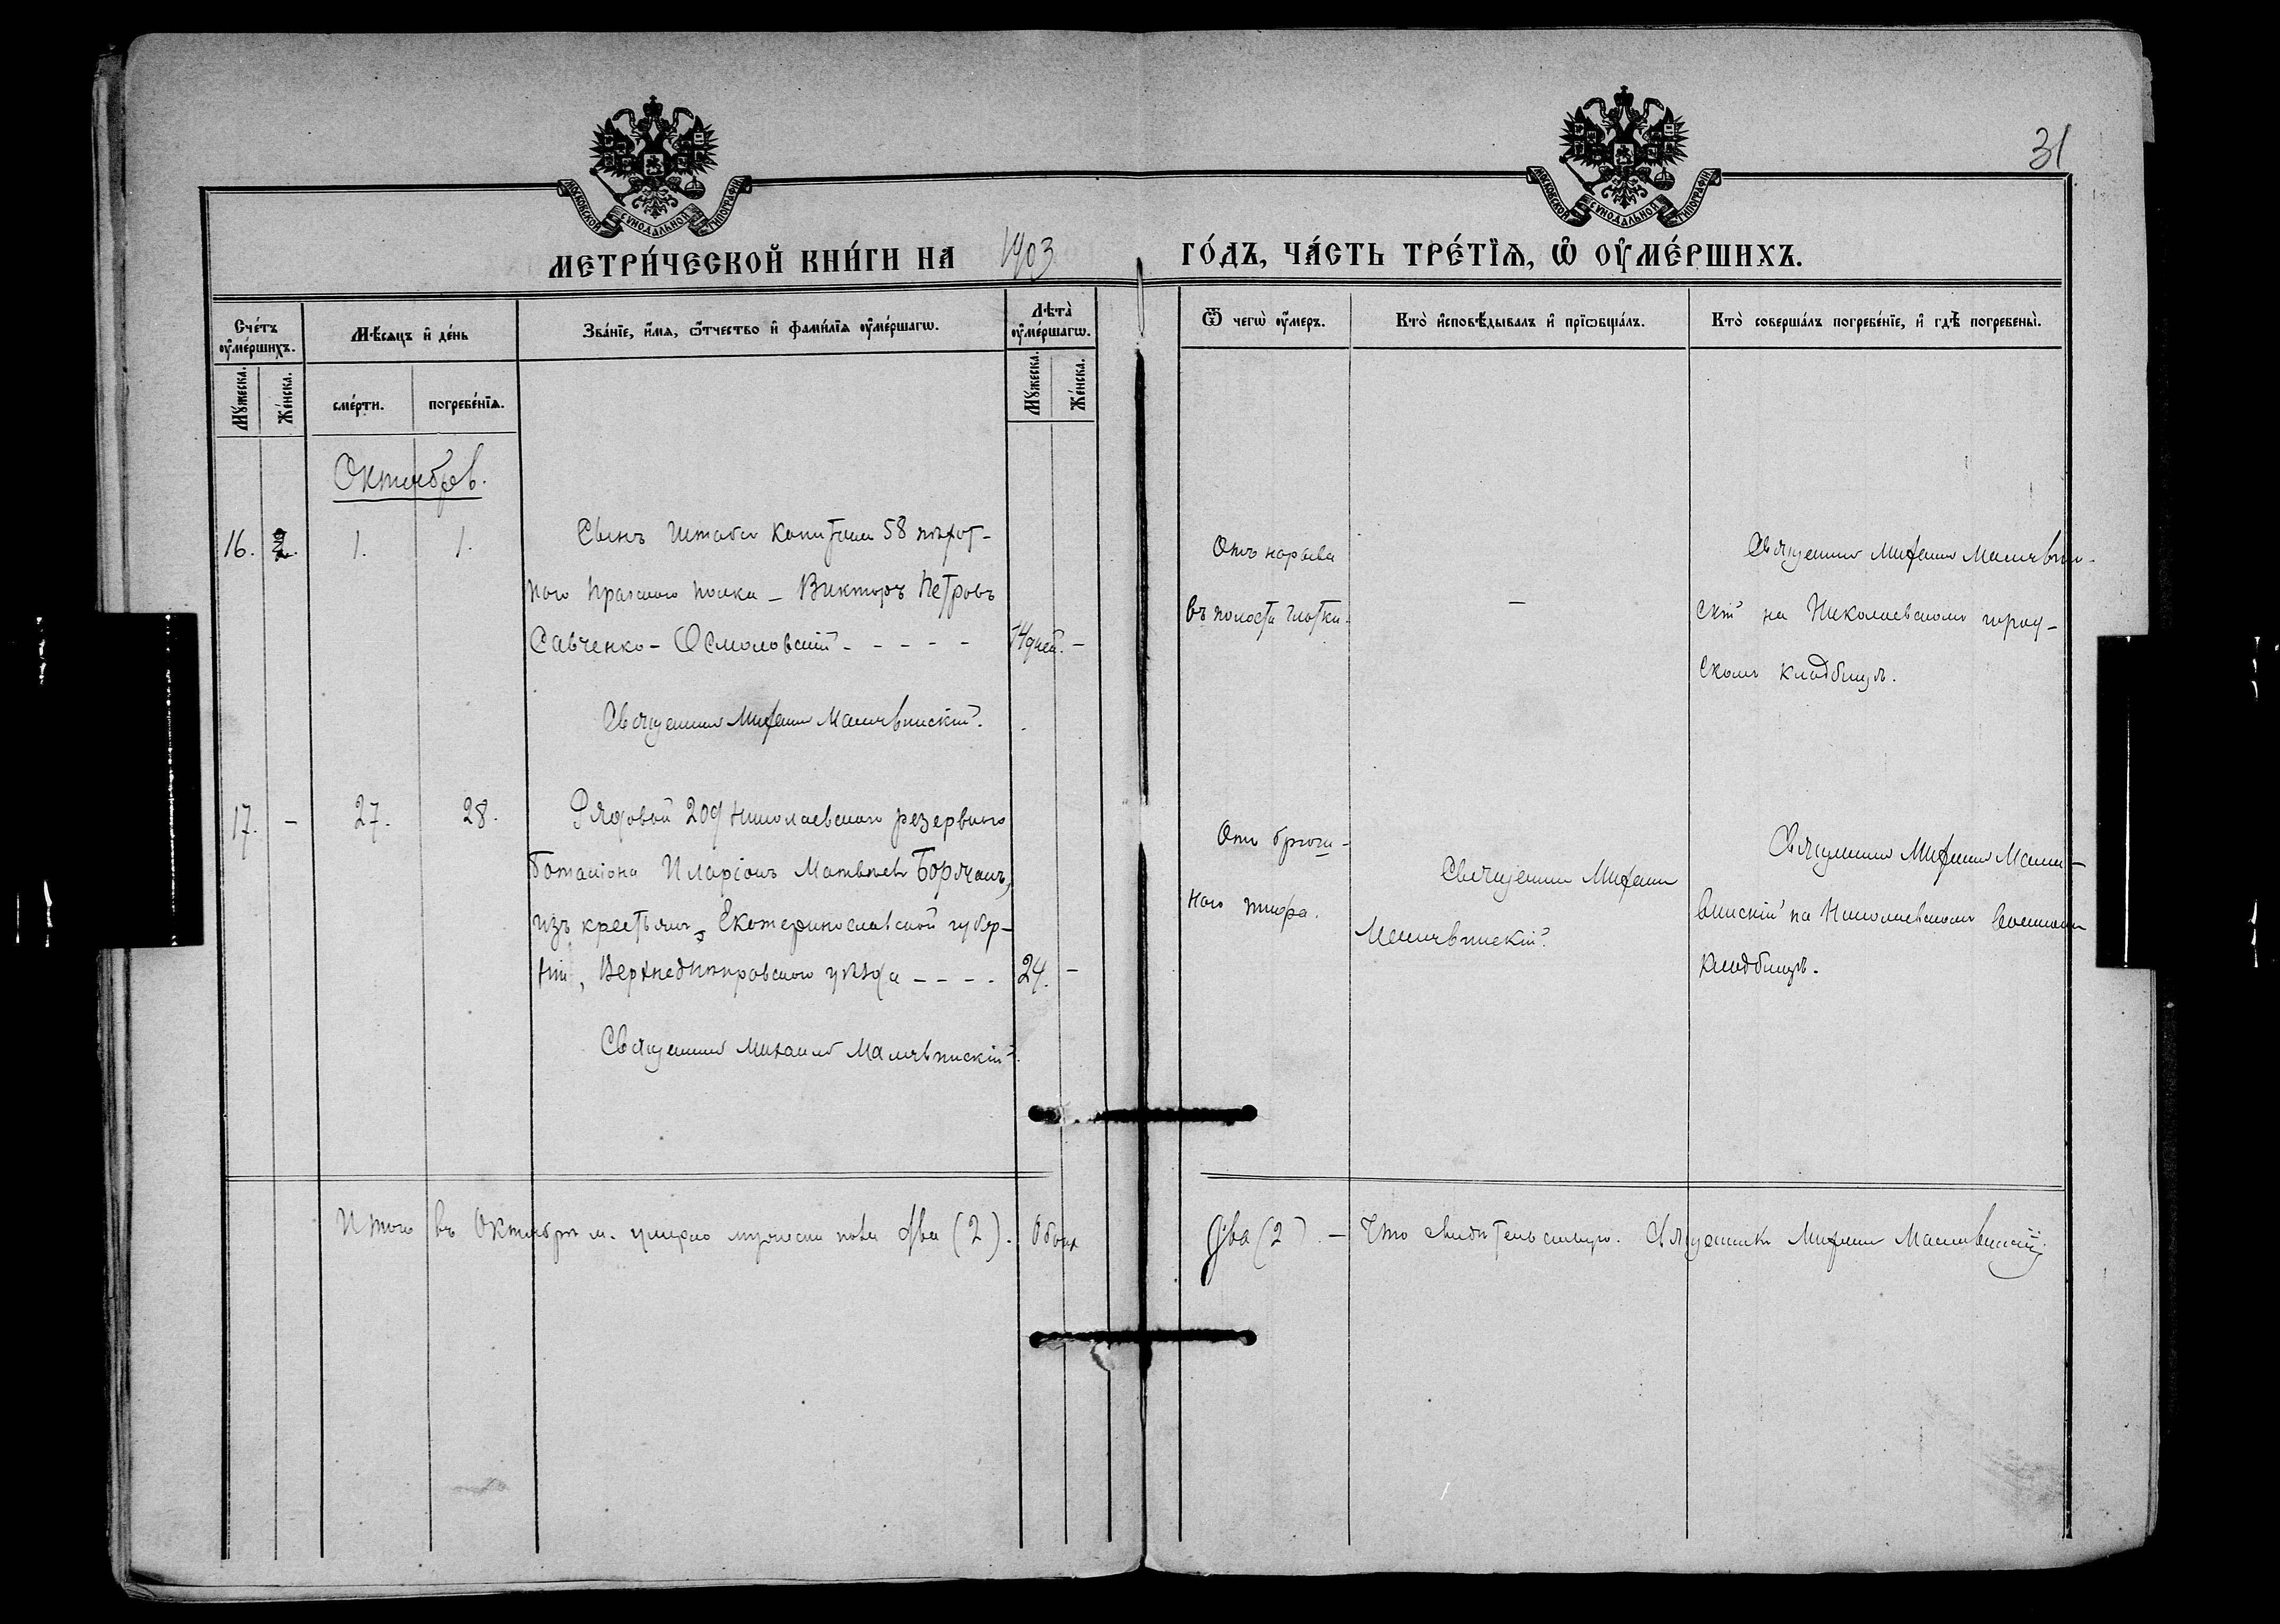 31
МОСКОВСКОЙ СѴНОДАЛЬНОЙ ТИПОГРАФІИ
МОСКОВСКОЙ СѴНОДАЛЬНОЙ ТИПОГРАФІИ
МЕТРИ́ЧЕСКОЙ КНИ́ГИ НА 1903 ГО́ДЪ, ЧА́СТЬ ТРЕ́ТІѦ, Ѡ҆ ОУ҆МЕ́РШИХЪ.
Сче́тъ оу҆ме́ршихъ.
Мꙋ́жеска.
Же́нска.
Мѣ́сѧцъ и҆ де́нь
сме́рти.
погребе́нїѧ.
Зва́нїе, и҆́мѧ, ѻ҆́тчество и҆ фами́лїѧ оу҆ме́ршагѡ.
Лѣта̀ оу҆ме́ршагѡ.
Мꙋ́жеска.
Же́нска.
Ѿ чегѡ̀ оу҆́меръ.
Кто̀ и҆сповѣ́дывалъ и҆ прїѡбща́лъ.
Кто̀ соверша́лъ погребе́нїе, и҆ гдѣ̀ погребены̀.
Октябрь.
16. 2. 1. 1.
Сынъ Штабсъ Капитана 58 пѣхот-
наго Пражскаго полка - Викторъ Петровъ
Савченко-Осмоловскій - - - - 14 дней. -
Священникъ Михаилъ Малявинскій.
Отъ нарыва
въ полости глотки.
-
Священникъ Михаилъ Малявин-
скій на Николаевскомъ город-
скомъ кладбищѣ.
17. - 27. 28.
Рядовой 209 Николаевскаго резервнаго
баталіона Иларіонъ Матвѣевъ Борячанъ,
изъ крестьянъ, Екатеринославской губер-
ніи, Верхнеднѣпровскаго уѣзда - - - - 24. -
Священникъ Михаилъ Малявинскій.
Отъ брюш-
наго тифа.
Священникъ Михаилъ
Малявинскій.
Священникъ Михаилъ Маля-
винскій на Николаевскомъ военномъ
кладбищѣ.
Итого въ Октябрѣ м. умерло мужеска пола два (2). Обоих
Два (2). - Что свидѣтельствую. Священникъ Михаилъ Малявинскій